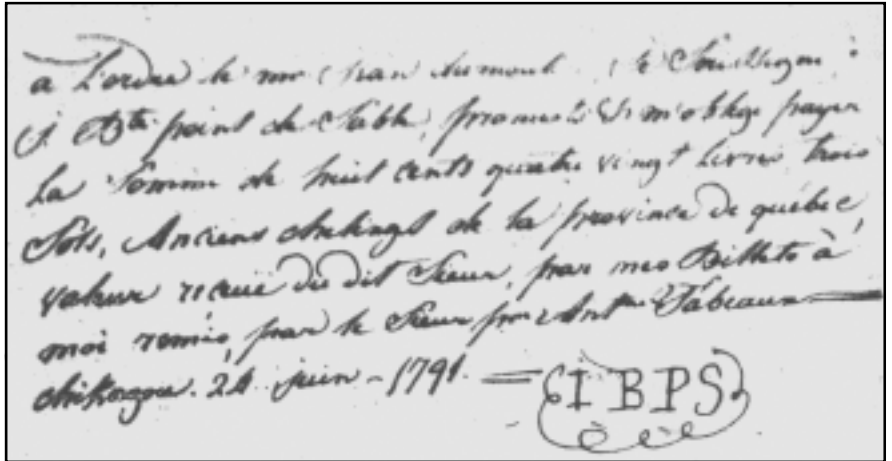 a L'ordre de mr Jean dumoul je Soussigné
J. Bte point de Sable, promets & m'oblige payer
La Somme de huit cents quatre vingt Livres trois
Sols, Anciens chelings de la province de québec,
valeur reçue du dit Sieur, par mes Billets à
moi remis, par le Sieur frs Ant Tabeaux
chikagou. 24 juin - 1791. = I B P S